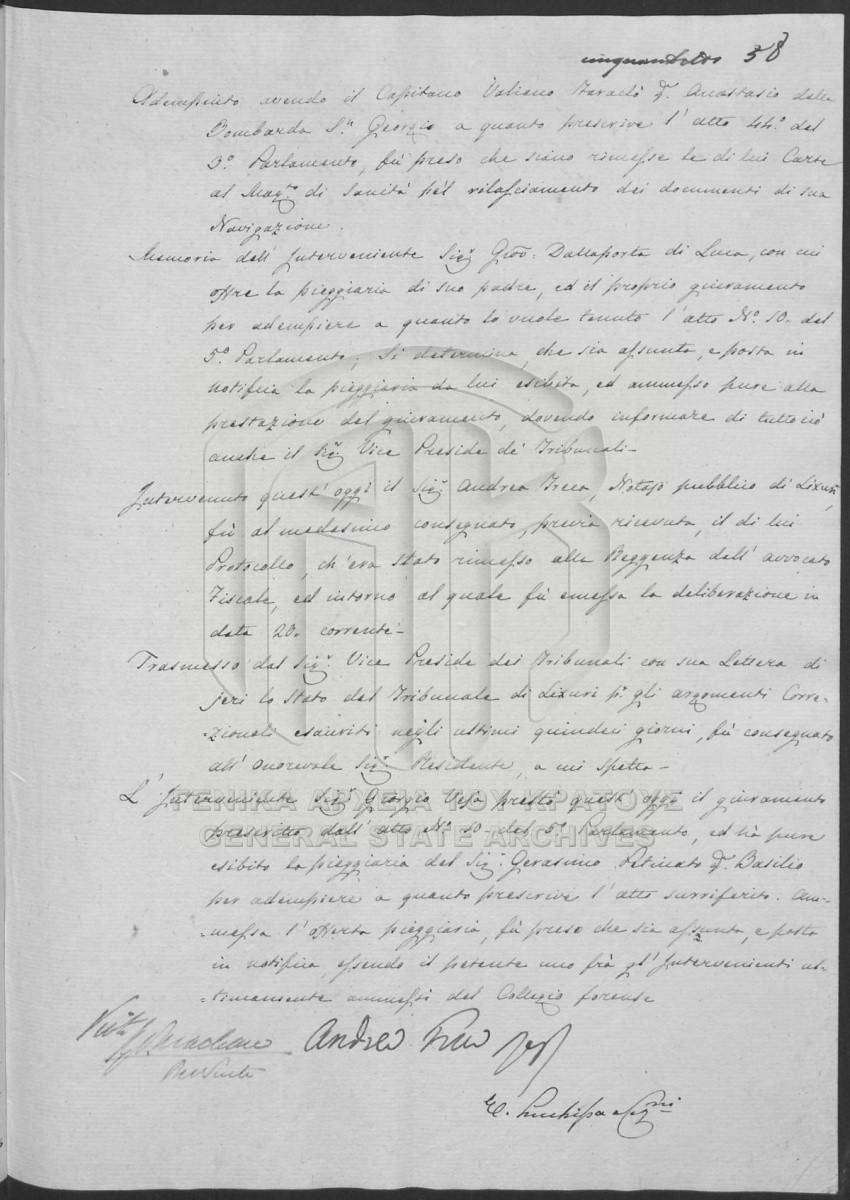 cinquantotto 58
Adempiuto avendo il Capitano Valiano Faraclò q.m Anastasio della
Bombarda S.n Georgio a quanto prescrive l'atto 44.o del
3.o Parlamento, fù preso che siano rimesse le di lui Carte
al Mag.to di Sanità pèl rilasciamento dei documenti di sua
Navigazione.
Memoria dell'Interveniente Sig.r Giov: Dallaporta di Luca, con cui
offre la pieggiaria di suo padre, ed il proprio giuramento
per adempiere a quanto lo vuole tenuto l'atto N.o 10. del
5.o Parlamento; Si determina, che sia assunta, e posta in
notifica la pieggiaria da lui esibita, ed ammesso pure alla
prestazione del giuramento, dovendo informare di tutto ciò
anche il Sig.r Vice Preside de' Tribunali-
Intervenuto quest'oggi il Sig.r Andrea Treca, Notajo pubblico di Lixuri,
fù al medesimo consegnato, previa ricevuta, il di lui
Protocollo, ch'era stato rimesso alla Reggenza dall'avvocato
Fiscale, ed intorno al quale fù emessa la deliberazione in
data 20. corrente-
Trasmesso dal Sig.r Vice Preside dei Tribunali con sua Lettera di
jeri lo stato del Tribunale di Lixuri p.r gli argomenti Corre-
-zionali esauriti negli ultimi quindeci giorni, fù consegnato
all'onorevole Sig.r Presidente, a cui spetta-
L'Interveniente Sig.r Giorgio Vega prestò quest'oggi il giuramento
prescritto dall'atto N.o 10. del 5.o Parlamento, ed hà pure
esibito la pieggiaria del Sig.r Gerasimo Petinato q.m Basilio
per adempiere a quanto prescrive l'atto surriferito. Am-
-messa l'offerta pieggiaria, fù preso che sia assunta, e posta
in notifica, essendo il petente uno frà gl'Intervenienti ul-
-timamente ammessi del Collegio forense
Andrea
ΓΕΝΙΚΑ ΑΡΧΕΙΑ ΤΟΥ ΚΡΑΤΟΥΣ
GENERAL STATE ARCHIVES